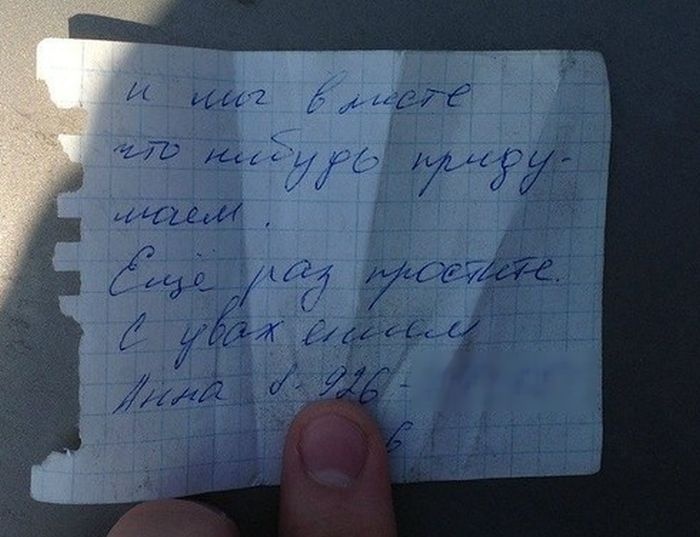 и мы вместе
что нибудь приду-
маем.
Ещё раз простите.
С уважением
Анна 8-926-
6